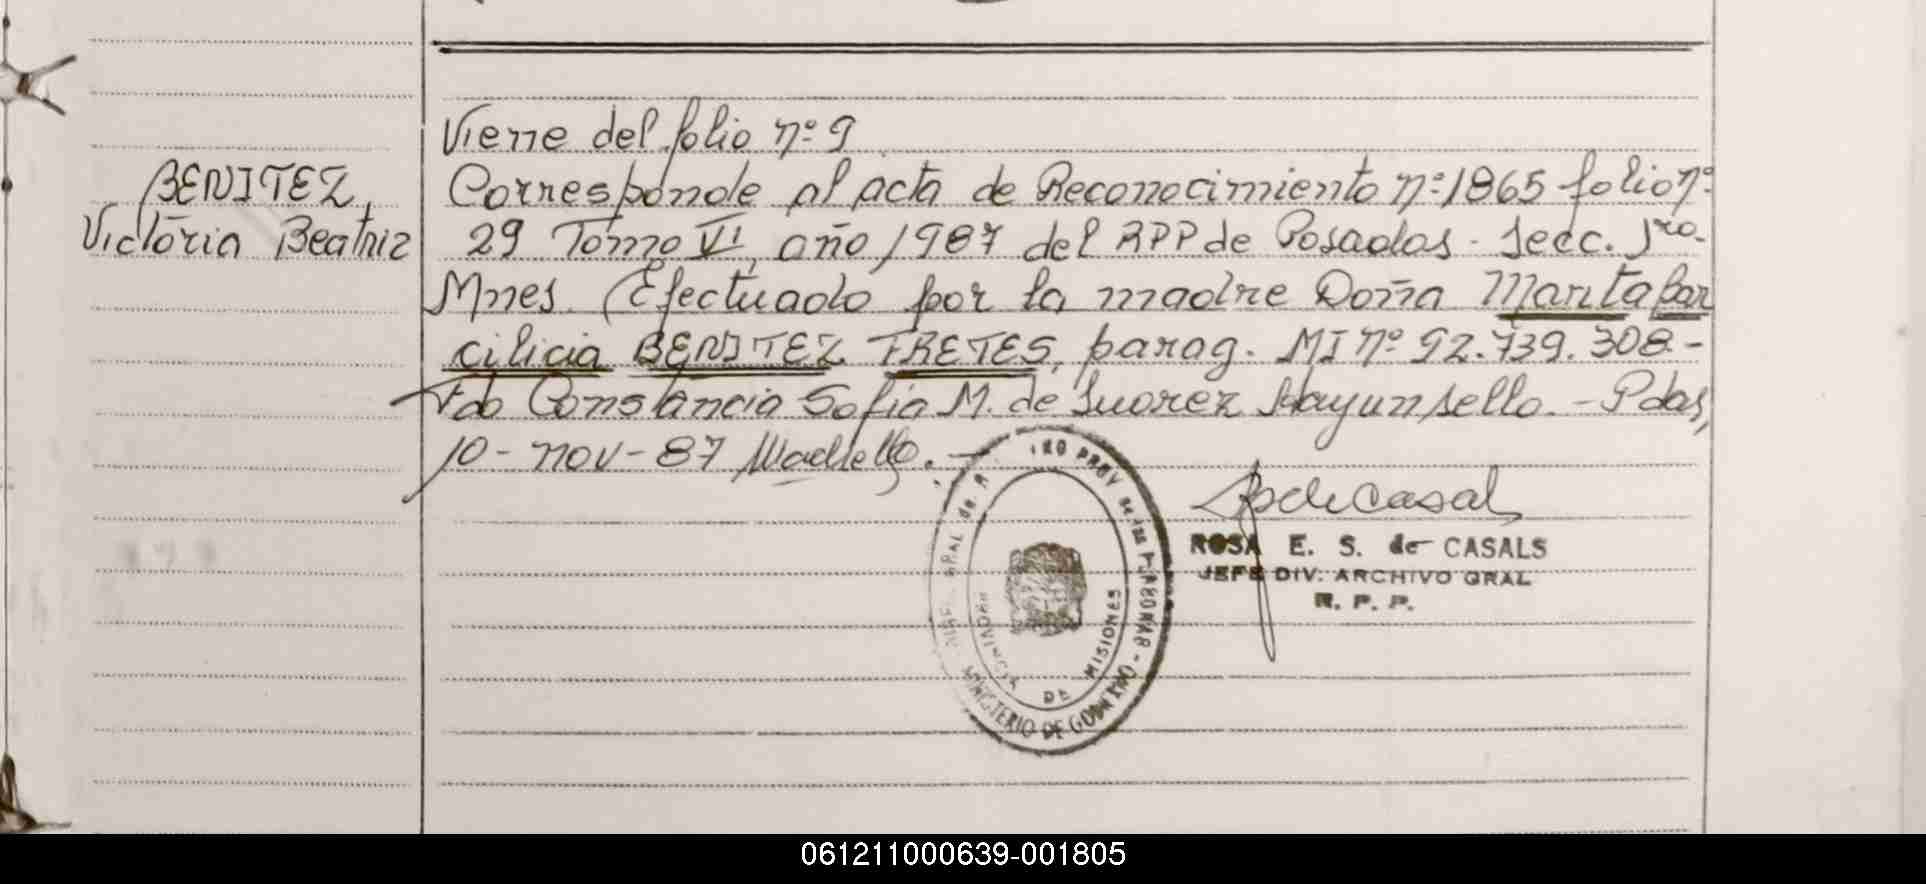 Viene del folio nº 9
BENITEZ,
Victoria Beatriz
Corresponde al acta de Reconocimiento nº 1865 folio nº
29 Tomo VI, año 1987 del RPP de Posadas - Secc. 1ra.
Mnes. (Efectuado por la madre Doña Marita Bar
cilicia BENITEZ FRETES, parag. MI nº 92.739.308.-
Fdo Constancia Sofia M. de Suarez Hay un sello. - Pdas,
10 - nov - 87
PROVINCIA DE MISIONES
MINISTERIO DE GOBIERNO
ROSA E. S. de CASALS
JEFE DIV. ARCHIVO GRAL
R. P. P.
061211000639-001805